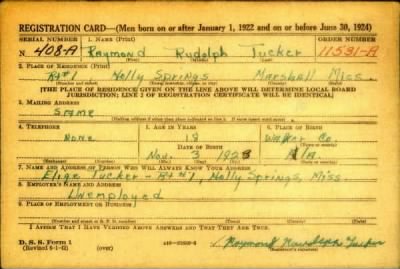 REGISTRATION CARD—(Men born on or after January 1, 1922 and on or before June 30, 1924)
SERIAL NUMBER 1. NAME (Print) ORDER NUMBER
N 408-A Raymond Rudolph Tucker 11531-A
(First) (Middle) (Last)
2. PLACE OF RESIDENCE (Print)
Rt #1 Holly Springs Marshall Miss.
(Number and street) (Town, township, village, or city) (County) (State)
[THE PLACE OF RESIDENCE GIVEN ON THE LINE ABOVE WILL DETERMINE LOCAL BOARD
JURISDICTION; LINE 2 OF REGISTRATION CERTIFICATE WILL BE IDENTICAL]
3. MAILING ADDRESS
Same
[Mailing address if other than place indicated on line 2. If same insert word same]
4. TELEPHONE 5. AGE IN YEARS 6. PLACE OF BIRTH
None 18
DATE OF BIRTH
Nov. 3 1923 Ala.
(Exchange) (Number) (Mo.) (Day) (Yr.) (State or country)
7. NAME AND ADDRESS OF PERSON WHO WILL ALWAYS KNOW YOUR ADDRESS
Tucker - Rt #1, Holly Springs, Miss.
8. EMPLOYER'S NAME AND ADDRESS
Unemployed
9. PLACE OF EMPLOYMENT OR BUSINESS
(Number and street or R. F. D. number) (Town) (County) (State)
I AFFIRM THAT I HAVE VERIFIED ABOVE ANSWERS AND THAT THEY ARE TRUE.
D. S. S. Form 1
(Revised 6-1-42) (over) Raymond Rudolph Tucker